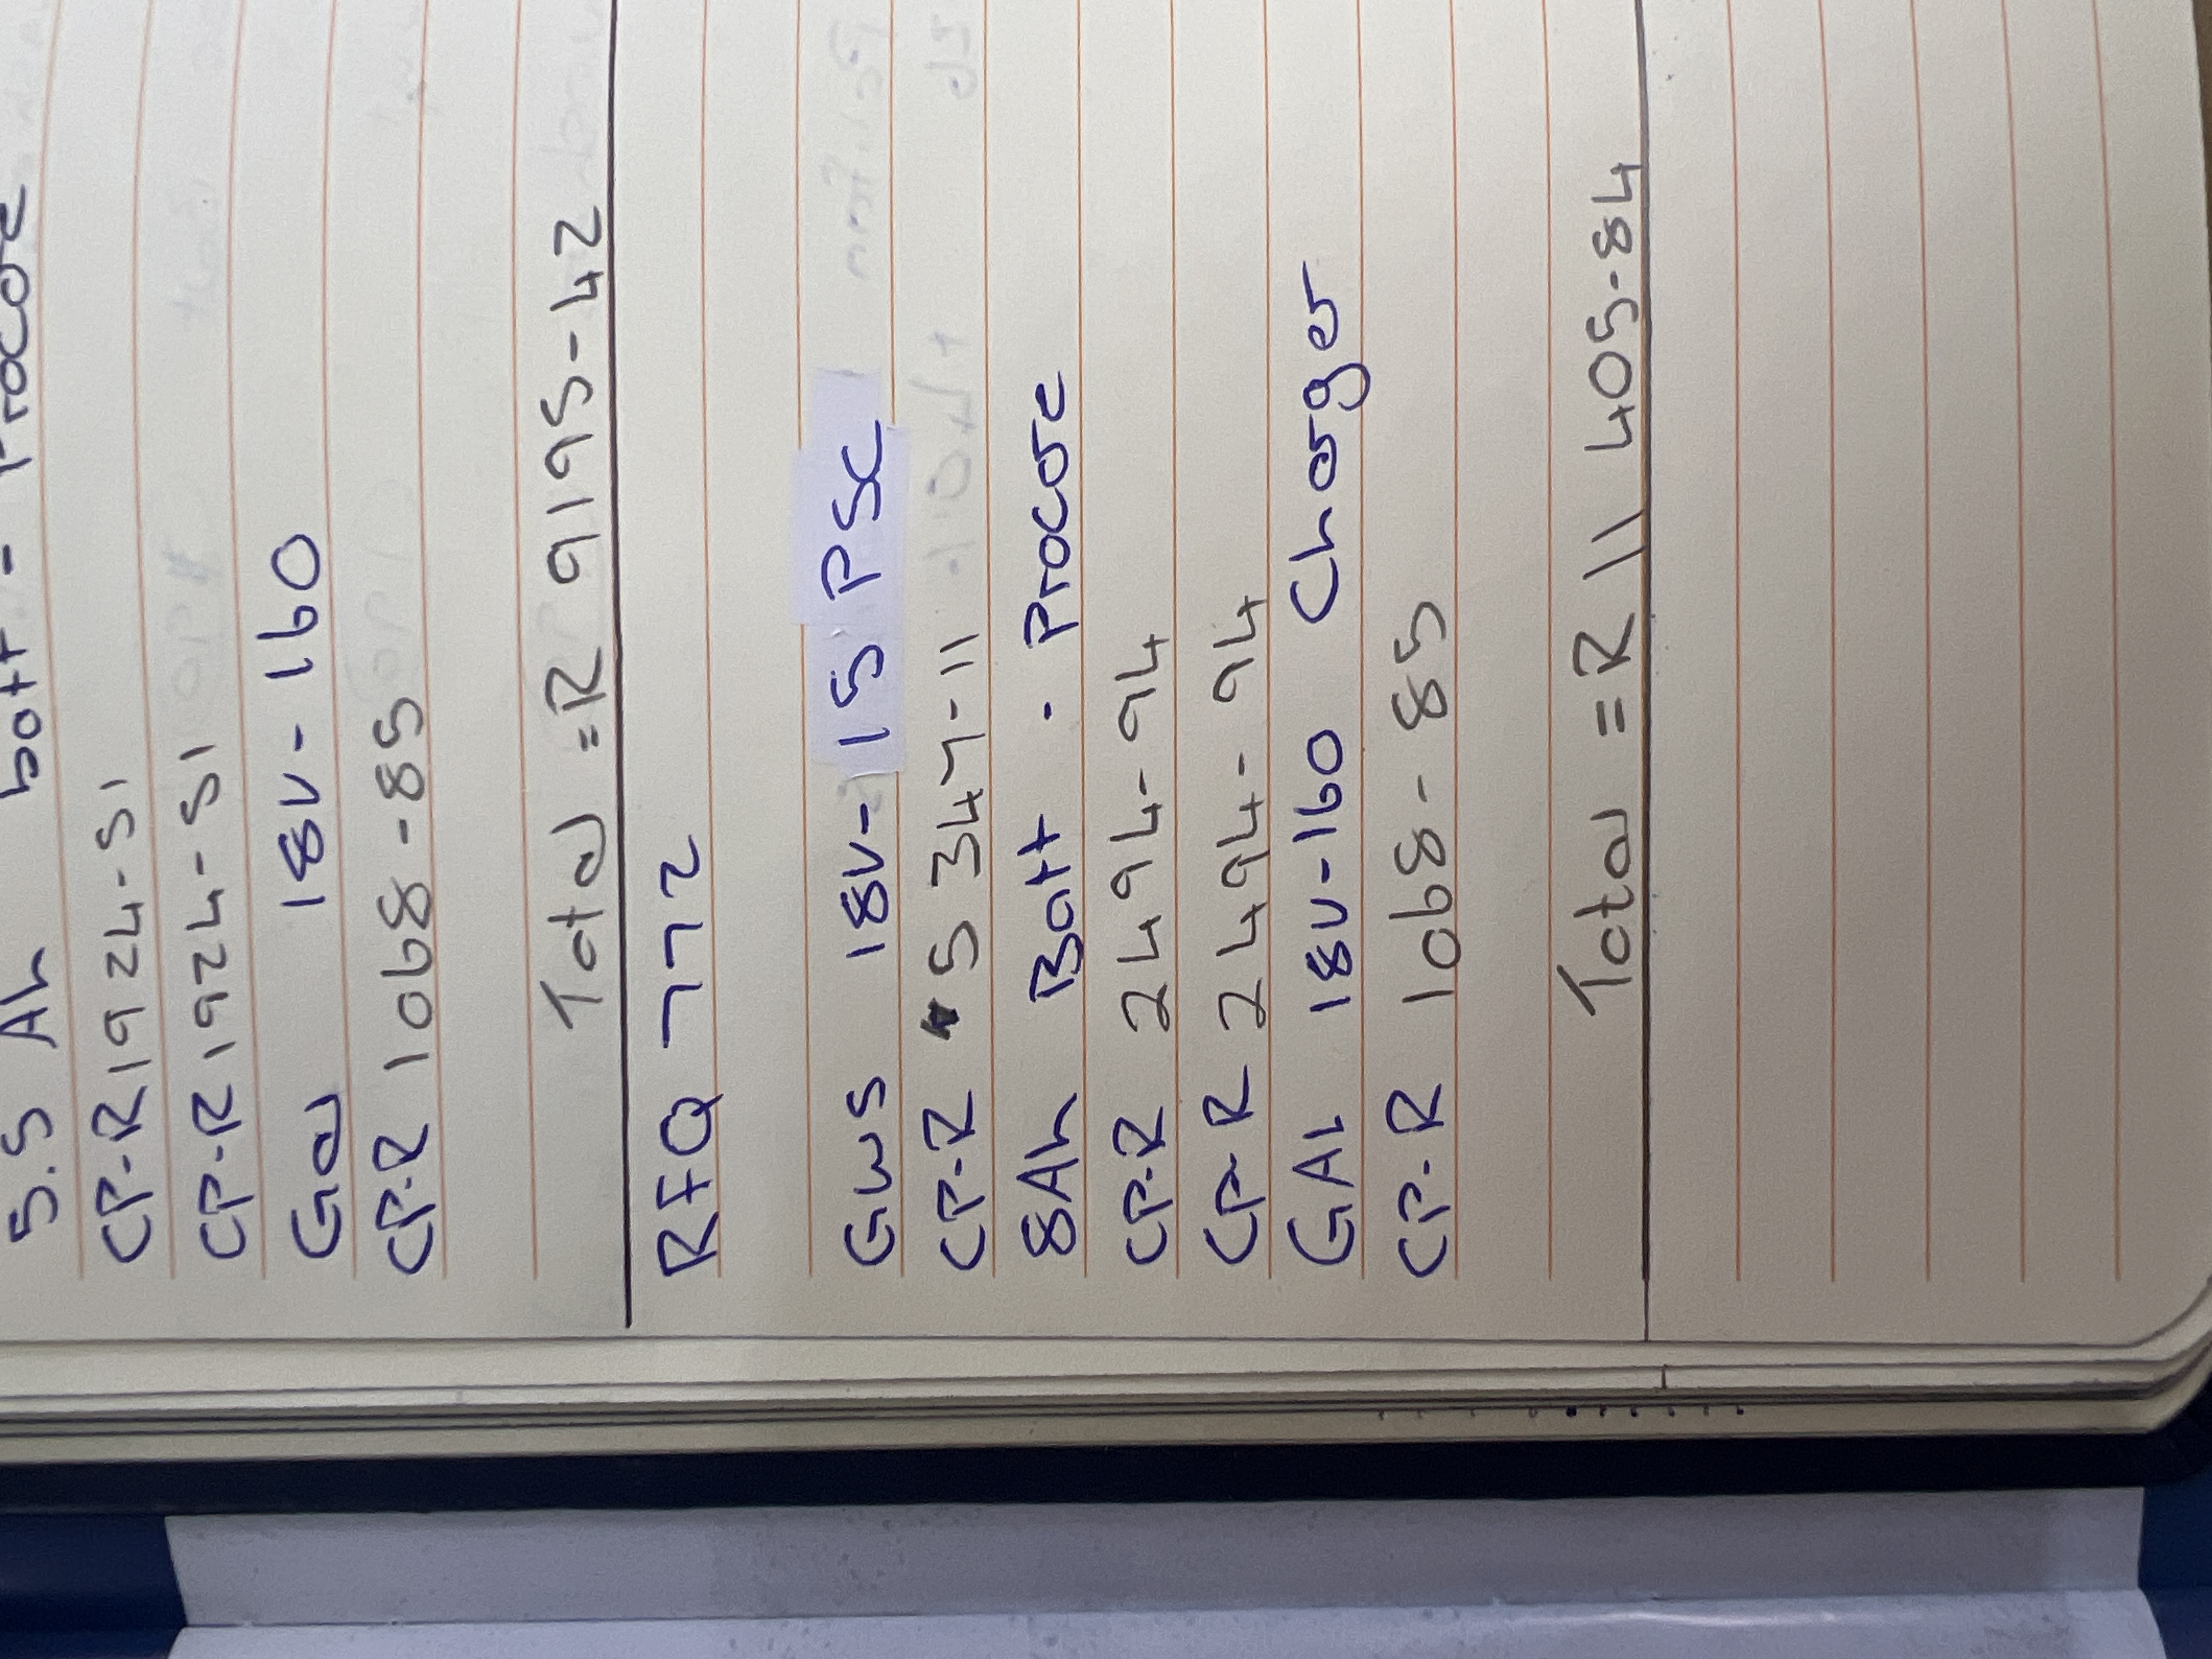 5.5 Ah batt - Procore
CP-R 1924-51
CP-R 1924-51
Gal 18V-160
CP-R 1068-85
Total = R 9195-42
RFQ 772
GWS 18V-15 PSC
CP-R 5 347-11
8Ah Batt - Procore
CP-R 2494-94
CP-R 2494-94
GAL 18V-160 Charger
CP-R 1068-85
Total = R 11 405-84